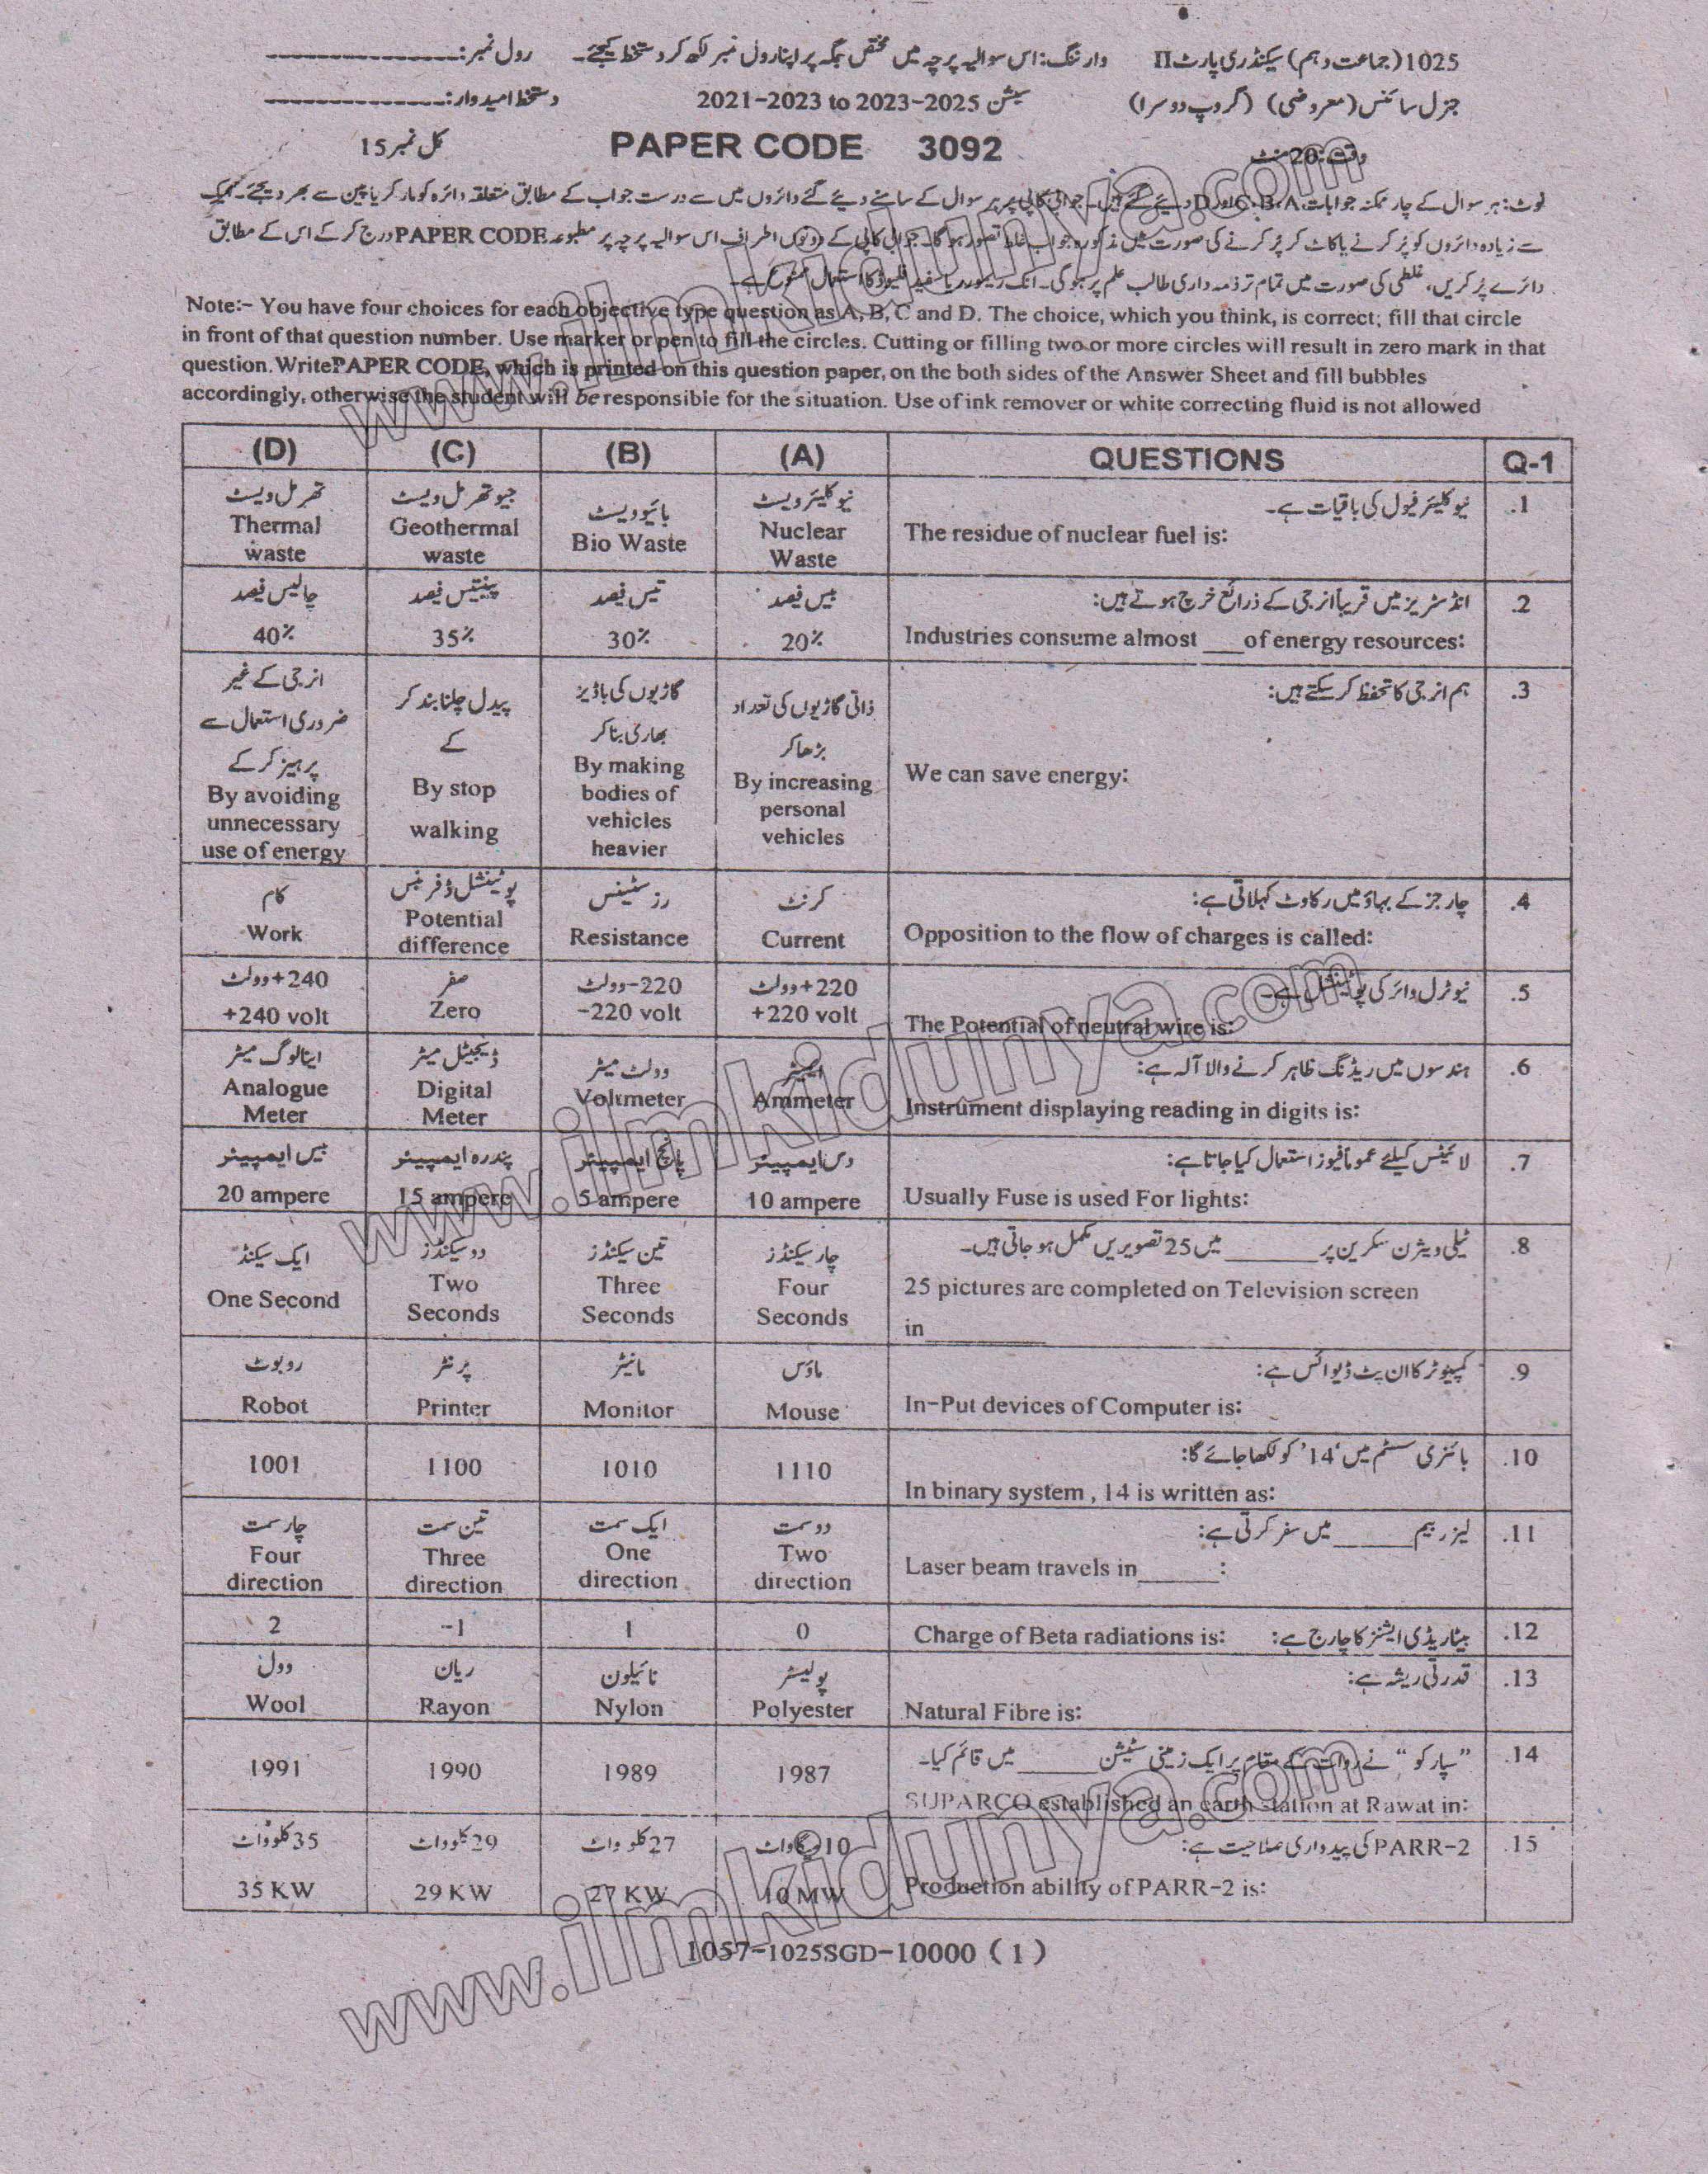 1025(جماعت دہم) سیکنڈری پارٹ II وارننگ: اس سوالیہ پرچہ میں مختص جگہ پر اپنا رول نمبر لکھ کر دستخط کیجئے۔ رول نمبر:
جنرل سائنس (معروضی) (گروپ دوسرا) سیشن 2021-2023 to 2023-2025 دستخط امیدوار:
وقت:20 منٹ PAPER CODE 3092 کل نمبر 15
نوٹ: ہر سوال کے چار ممکنہ جوابات C،B،A اور D دیئے گئے ہیں۔ جوابی کاپی پر ہر سوال کے سامنے دیئے گئے دائروں میں سے درست جواب کے مطابق متعلقہ دائرہ کو مارکر یا پین سے بھر دیجئے۔
سے زیادہ دائروں کو پُر کرنے یا کاٹ کر پُر کرنے کی صورت میں مذکورہ جواب غلط تصور ہوگا۔ جوابی کاپی کے دونوں اطراف اس سوالیہ پرچہ پر مطبوعہ PAPER CODE درج کر کے اس کے مطابق
دائرے پُر کریں، غلطی کی صورت میں تمام تر ذمہ داری طالب علم پر ہوگی۔ انک ریموور یا سفید فلیوڈ کا استعمال ممنوع ہے۔
Note:- You have four choices for each objective type question as A, B, C and D. The choice, which you think, is correct; fill that circle
in front of that question number. Use marker or pen to fill the circles. Cutting or filling two or more circles will result in zero mark in that
question. Write PAPER CODE, which is printed on this question paper, on the both sides of the Answer Sheet and fill bubbles
accordingly, otherwise the student will be responsible for the situation. Use of ink remover or white correcting fluid is not allowed
(D) (C) (B) (A) QUESTIONS Q-1
تھرمل ویسٹ جیوتھرمل ویسٹ بائیو ویسٹ نیوکلیئر ویسٹ نیوکلیئر فیول کی باقیات ہے۔ .1
Thermal Geothermal Bio Waste Nuclear The residue of nuclear fuel is:
waste waste Waste
چالیس فیصد پینتیس فیصد تیس فیصد بیس فیصد انڈسٹریز میں قریباً انرجی کے ذرائع خرچ ہوتے ہیں: .2
40% 35% 30% 20% Industries consume almost ___of energy resources:
انرجی کے غیر پیدل چلنا بند کر گاڑیوں کی باڈیز ذاتی گاڑیوں کی تعداد ہم انرجی کا تحفظ کر سکتے ہیں: .3
ضروری استعمال سے کے بھاری بنا کر بڑھا کر
پرہیز کر کے By stop By making By increasing We can save energy:
By avoiding walking bodies of personal
unnecessary vehicles vehicles
use of energy heavier
کام پوٹینشل ڈفرنس رزسٹینس کرنٹ چارجز کے بہاؤ میں رکاوٹ کہلاتی ہے: .4
Work Potential Resistance Current Opposition to the flow of charges is called:
difference
+240وولٹ صفر -220وولٹ +220وولٹ نیوٹرل وائر کی پوٹینشل ہے۔ .5
+240 volt Zero -220 volt +220 volt The Potential of neutral wire is:
اینالوگ میٹر ڈیجیٹل میٹر وولٹ میٹر ایمیٹر ہندسوں میں ریڈنگ ظاہر کرنے والا آلہ ہے: .6
Analogue Digital Voltmeter Ammeter Instrument displaying reading in digits is:
Meter Meter
بیس ایمپیئر پندرہ ایمپیئر پانچ ایمپیئر دس ایمپیئر لائیٹس کیلئے عموماً فیوز استعمال کیا جاتا ہے: .7
20 ampere 15 ampere 5 ampere 10 ampere Usually Fuse is used For lights:
ایک سیکنڈ دو سیکنڈز تین سیکنڈز چار سیکنڈز ٹیلی ویژن سکرین پر ______ میں 25 تصویریں مکمل ہو جاتی ہیں۔ .8
One Second Two Three Four 25 pictures are completed on Television screen
Seconds Seconds Seconds in_________
روبوٹ پرنٹر مانیٹر ماؤس کمپیوٹر کا ان پٹ ڈیوائس ہے: .9
Robot Printer Monitor Mouse In-Put devices of Computer is:
1001 1100 1010 1110 بائنری سسٹم میں '14' کو لکھا جائے گا: .10
In binary system , 14 is written as:
چار سمت تین سمت ایک سمت دو سمت لیزر بیم ______ میں سفر کرتی ہے: .11
Four Three One Two Laser beam travels in______:
direction direction direction direction
2 -1 1 0 Charge of Beta radiations is: بیٹا ریڈی ایشنز کا چارج ہے: .12
وول ریان نائیلون پولیسٹر قدرتی ریشہ ہے: .13
Wool Rayon Nylon Polyester Natural Fibre is:
1991 1990 1989 1987 "سپارکو" نے روات کے مقام پر ایک زمینی سٹیشن ______ میں قائم کیا۔ .14
SUPARCO established an earth station at Rawat in:
35کلوواٹ 29کلوواٹ 27کلوواٹ 10میگاواٹ PARR-2 کی پیداواری صلاحیت ہے: .15
35 KW 29 KW 27 KW 10 MW Production ability of PARR-2 is:
1057-1025SGD-10000 (1)
www.ilmkidunya.com
www.ilmkidunya.com
www.ilmkidunya.com